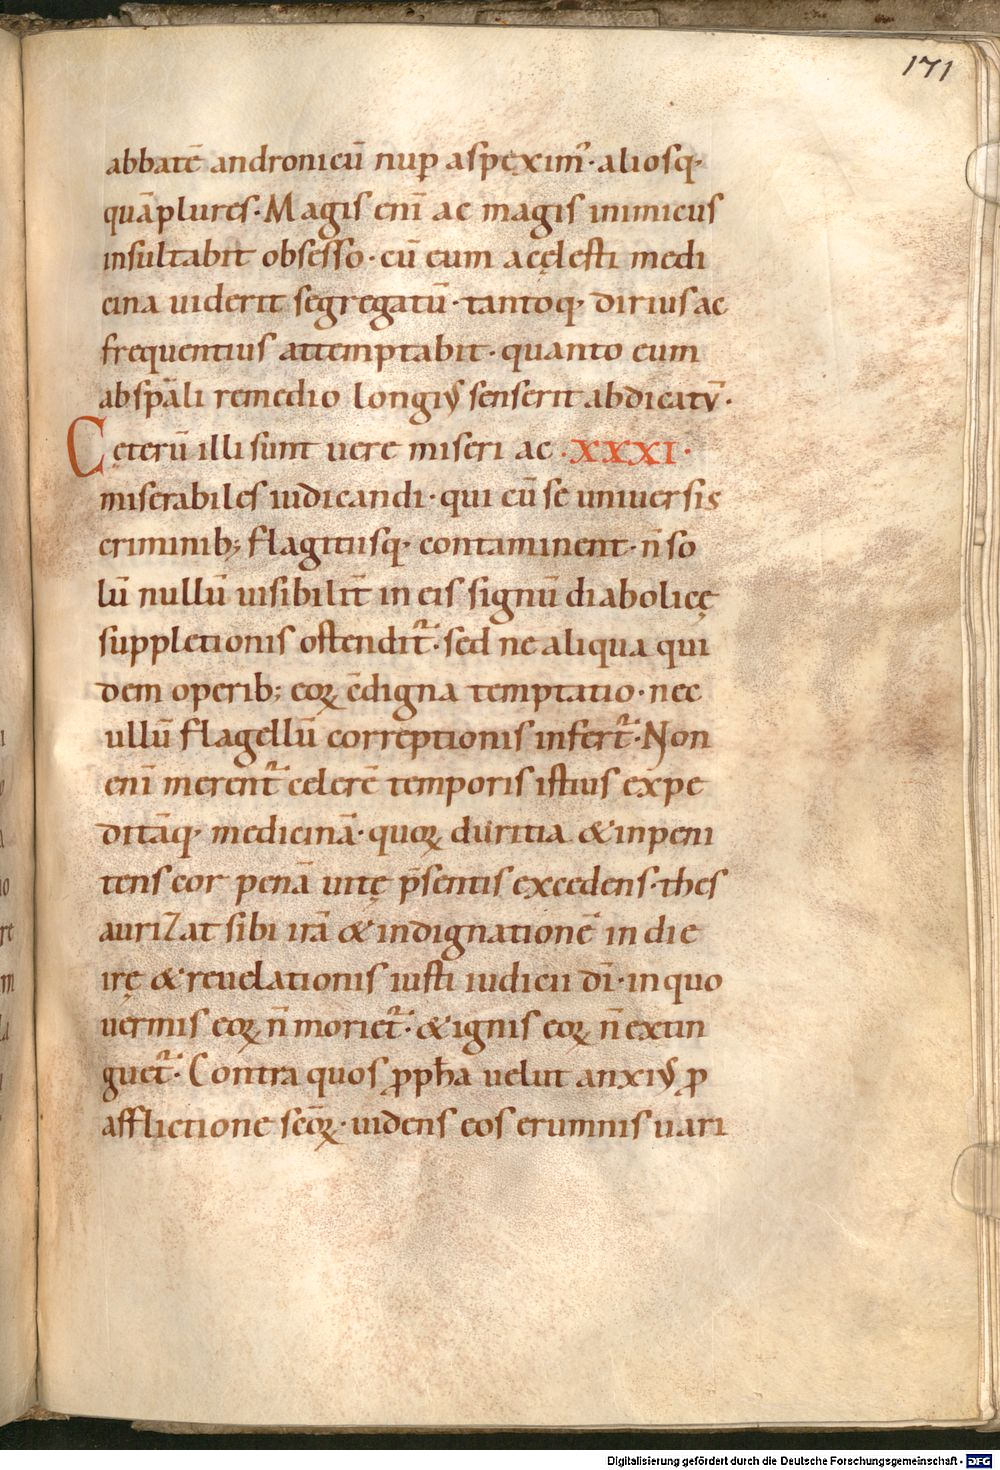 171
abbatē andronicū nuꝑ aspexim᷒·aliosq·
quāplures·Magis enī ac magis inimicus
insultabit obsesso·cū eum acęlesti medi
cina uiderit segregatū·tantoq· dirius ac
frequentius attemptabit·quanto eum
abspāli remedio longiꝰ senserit abdicatū·
Cęterū illi sunt uere miseri ac ·XXXI·
miserabiles iudicandi·qui cū se uniuersis
criminib; flagitiisq· contaminent·n̄ so
lū nullū uisibilit̄ in eis signū diabolicę
suppletionis ostendit᷑·sed ne aliqua qui
dem operib; eoꝝ ēdigna temptatio·nec
ullū flagellū correptionis infert᷑·Non
enī merent᷑ celerē temporis istius expe
ditāq· medicinā·quoꝝ duritia & inpeni
tens cor penā uitę p̄sentis excedens·thes
aurizat sibi irā & indignationē in die
irę & reuelationis iusti iudicii dī·in quo
uermis eoꝝ n̄ moriet᷑·& ignis eoꝝ n̄ extin
guet᷑·Contra quos ꝓpha uelut anxiꝰ ꝓ
afflictione scōꝝ·uidens eos erumnis uari
Digitalisierung gefördert durch die Deutsche Forschungsgemeinschaft - DFG